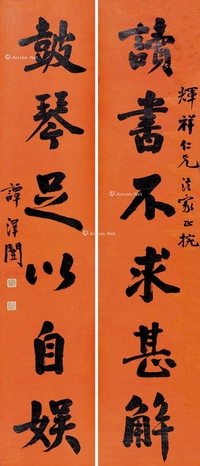 輝祥仁兄法家正捥
讀書不求甚解
鼓琴足以自娛
譚澤闓